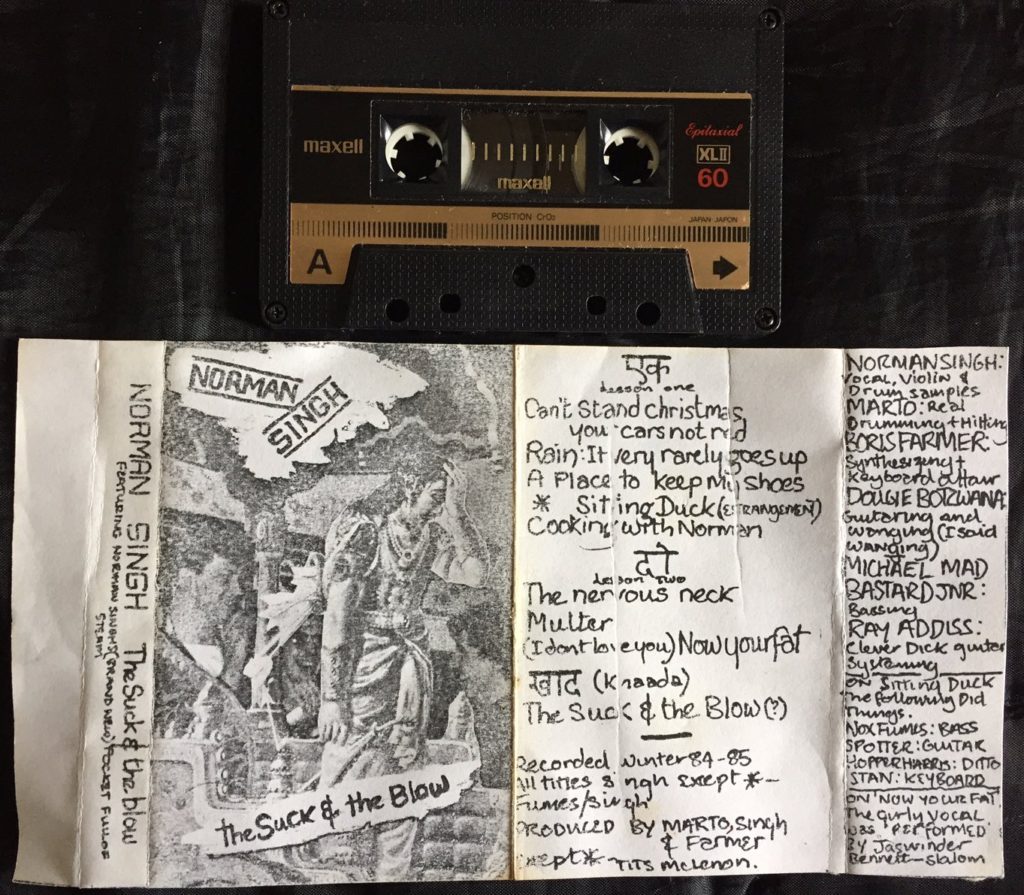 maxell
maxell
Epitaxial
XLII
60
POSITION CrO₂
JAPAN·JAPON
A
NORMAN SINGH The Suck & the blow
FEATURING NORMAN SINGHS (BRAND NEW) POCKET FULL OF
STEAM)
NORMAN
SINGH
the Suck & the Blow
एक
Lesson one
Can't Stand christmas
you cars not red
Rain: It very rarely goes up
A Place to keep My shoes
* Sitting Duck (ESTRANGEMENT)
Cooking with Norman
दो
Lesson two
The nervous neck
Multer
(I dont love you) Now your fat
खाद (Khaada)
The Suck & the Blow (?)
Recorded winter 84-85
All titles singh except * -
Fumes/singh
PRODUCED BY MARTO, Singh
& Farmer
except * TITS McLenon.
NORMAN SINGH:
Vocal, Violin &
Drum samples
MARTO: Real
Drumming + Hitting
BORIS FARMER:
Synthesizeny +
Keyboard
DOUGIE BOTZWANA:
Guitaring and
wanging (I said
wanging)
MICHAEL MAD
BASTARD JNR:
Bassing
RAY ADDISS:
Clever Dick guitar
Systening
ON Sitting Duck
The following Did
Things.
NOX FUMES: BASS
SPOTTER: GUITAR
HOPPER HARRIS: DITTO
STAN: KEYBOARD
ON 'NOW YOUR FAT'
The girly vocal
was 'PERFORMED'
BY Jaswinder
Bennett-slalom